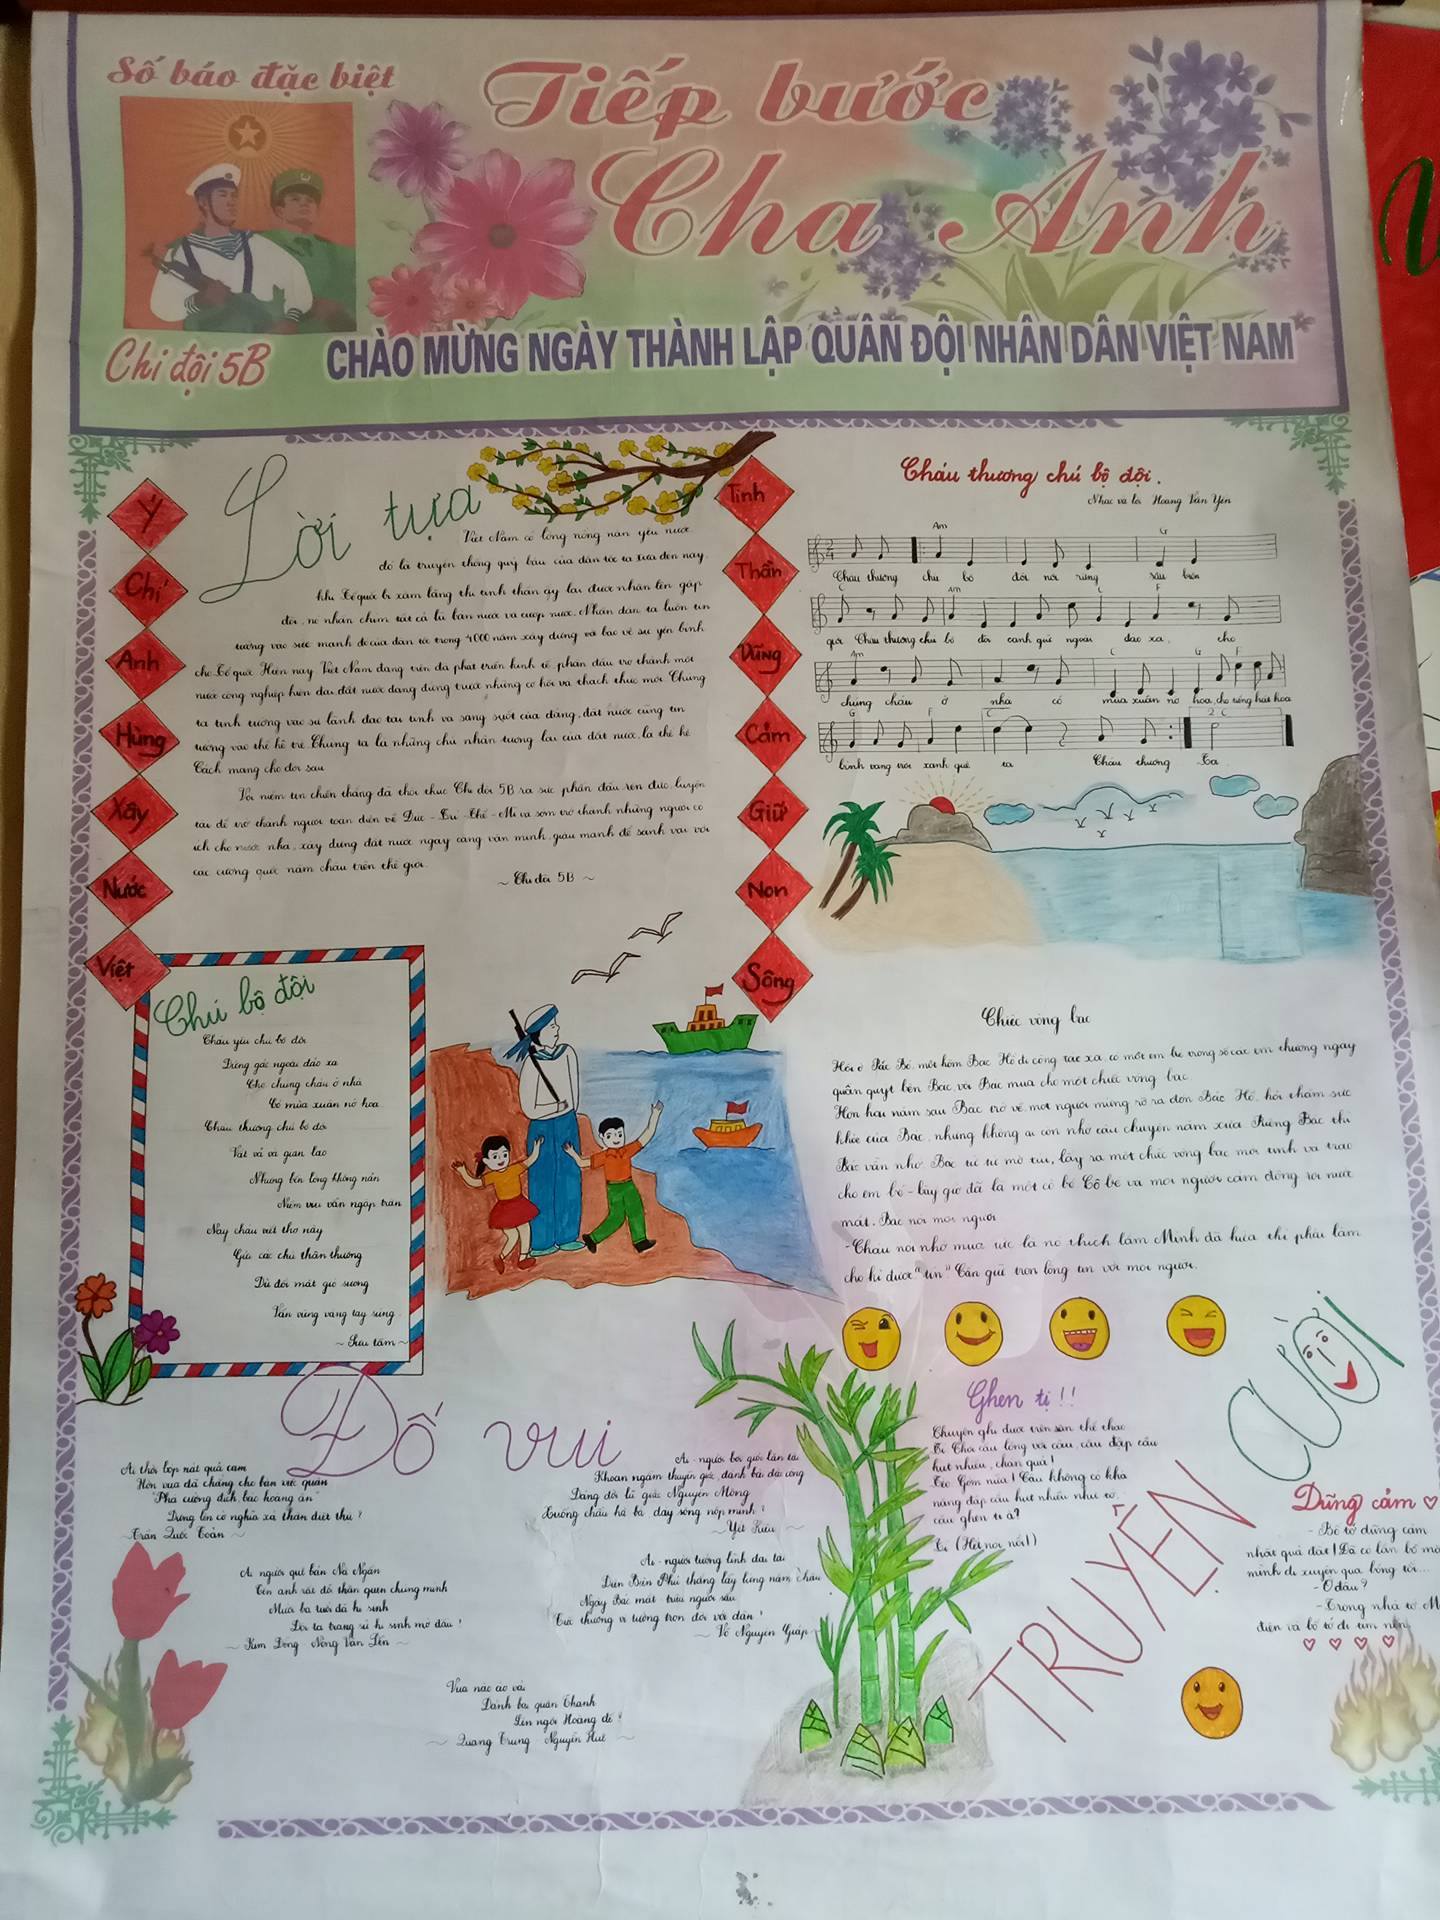 Số báo đặc biệt
Tiếp bước
Cha Anh
Chi đội 5B
CHÀO MỪNG NGÀY THÀNH LẬP QUÂN ĐỘI NHÂN DÂN VIỆT NAM
Ý
Chí
Anh
Hùng
Xây
Nước
Việt
Lời tựa
Việt Nam có lòng nồng nàn yêu nước
đó là truyền thống quý báu của dân tộc ta. Xưa đến nay,
khi Tổ quốc bị xâm lăng thì tinh thần ấy lại được nhân lên gấp
đôi, nó nhấn chìm tất cả lũ bán nước và cướp nước. Nhân dân ta luôn tin
tưởng vào sức mạnh đó của dân tộc trong 4000 năm xây dựng và bảo vệ sự yên bình
cho Tổ quốc. Hiện nay Việt Nam đang trên đà phát triển kinh tế, phấn đấu trở thành một
nước công nghiệp hiện đại, đất nước đang đứng trước những cơ hội và thách thức mới. Chúng
ta tin tưởng vào sự lãnh đạo tài tình và sáng suốt của đảng, đất nước cũng tin
tưởng vào thế hệ trẻ. Chúng ta là những chủ nhân tương lai của đất nước, là thế hệ
Cách mạng cho đời sau.
Với niềm tin chiến thắng đã thôi thúc Chi đội 5B ra sức phấn đấu rèn đức, luyện
tài để trở thành người toàn diện về Đức - Trí - Thể - Mĩ và sớm trở thành những người có
ích cho nước nhà, xây dựng đất nước ngày càng văn minh, giàu mạnh để sánh vai với
các cường quốc năm châu trên thế giới.
~ Chi đội 5B ~
Tinh
Thần
Vững
Cảm
Giữ
Non
Sông
Cháu thương chú bộ đội.
Nhạc và lời Hoàng Văn Yến
Am G
Cháu thương chú bộ đội nơi rừng sâu biên
C Am C F
giới Cháu thương chú bộ đội canh giữ ngoài đảo xa, cho
Am C G F
chúng cháu ở nhà có mùa xuân nở hoa, cho tiếng hát hòa
G F C 2. C
bình vang trời xanh quê ta Cháu thương ta.
Chú bộ đội
Cháu yêu chú bộ đội
Đứng gác ngoài đảo xa
Cho chúng cháu ở nhà
Có mùa xuân nở hoa
Cháu thương chú bộ đội
Vất vả và gian lao
Nhưng bền lòng không nản
Niềm vui vẫn ngập tràn
Nay cháu viết thơ này
Gửi các chú thân thương
Dù đối mặt gió sương
Vẫn vững vàng tay súng.
~ Sưu tầm ~
Chiếc vòng bạc
Hồi ở Pắc Bó, một hôm Bác Hồ đi công tác xa, có một em bé trong số các em thường ngày
quấn quýt bên Bác, vòi Bác mua cho một chiếc vòng bạc.
Hơn hai năm sau Bác trở về, mọi người mừng rỡ ra đón Bác Hồ, hỏi thăm sức
khỏe của Bác, nhưng không ai còn nhớ câu chuyện năm xưa. Riêng Bác thì
Bác vẫn nhớ. Bác từ từ mở túi, lấy ra một chiếc vòng bạc mới tinh và trao
cho em bé - bây giờ đã là một cô bé. Cô bé và mọi người cảm động rơi nước
mắt. Bác nói mọi người
-Cháu nó nhờ mua, tức là nó thích lắm. Mình đã hứa thì phải làm
cho kì được "tín" Cần giữ trọn lòng tin với mọi người.
Đố vui
Ai thời bóp nát quả cam
Hờn vua đã chẳng cho bàn việc quân
"Phá cường địch, báo hoàng ân"
Dựng lên cờ nghĩa xả thân diệt thù?
~ Trần Quốc Toản ~
Ai người quê bản Nà Ngần
Tên anh rất đỗi thân quen chúng mình
Mười ba tuổi đã hi sinh
Đội ta trang sử hi sinh mở đầu?
~ Kim Đồng Nông Văn Dền ~
Ai - người bơi giỏi lặn tài
Khoan ngầm thuyền giặc, đánh bài dài công
Đáng đời lũ giặc Nguyên Mông
Xuống chầu hà bá dạy sông nộp mình?
~ Yết Kiêu ~
Ai - người tướng lĩnh đại tài
Điện Biên Phủ thắng lẫy lừng năm châu
Ngày Bác mất triệu người sầu
Tiếc thương vị tướng trọn đời với dân?
~ Võ Nguyên Giáp ~
Vua nào áo vải
Đánh bại quân Thanh
Lên ngôi Hoàng đế?
~ Quang Trung Nguyễn Huệ ~
TRUYỆN CƯỜI
Ghen tị!!
Chuyện ghi được trên sân thể thao
Tèo Gớm nữa! Cậu không có khả
năng đập cầu hụt nhiều như tớ,
cậu ghen tị à?
Tí (Hết nói nổi!)
Dũng cảm ♡
- Bố tớ dũng cảm
nhất quả đất! Đã có lần bố
mình đi xuyên qua bóng tối...
- Ở đâu?
- Trong nhà tớ
điện và bố tớ đi tìm nến.
♡ ♡ ♡ ♡